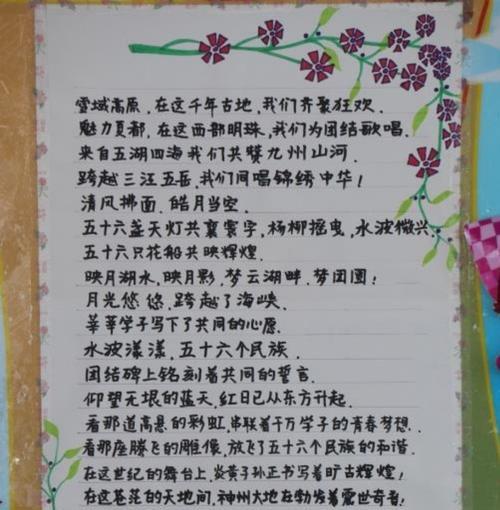 雪域高原，在这千年古地，我们齐聚狂欢．
魅力夏都，在这西部明珠，我们为团结歌唱．
来自五湖四海我们共赞九州山河．
跨越三江五岳，我们同唱锦绣中华！
清风拂面．皓月当空．
五十六盏天灯共襄寰宇，杨柳摇曳，水波微兴．
五十六只花船共映辉煌．
映月湖水，映月影，梦云湖畔．梦团圆！
月光悠悠，跨越了海峡．
莘莘学子写下了共同的心愿．
水波漾漾．五十六个民族．
团结碑上铭刻着共同的誓言．
仰望无垠的蓝天，红日已从东方升起．
看那道高悬的彩虹，串联着千万学子的青春梦想．
看那座腾飞的雕像，放飞了五十六个民族的和谐．
在这世纪的舞台上，炎黄子孙正书写着旷古辉煌！
在这苍茫的天地间，神州大地在勃发着震世奇音！